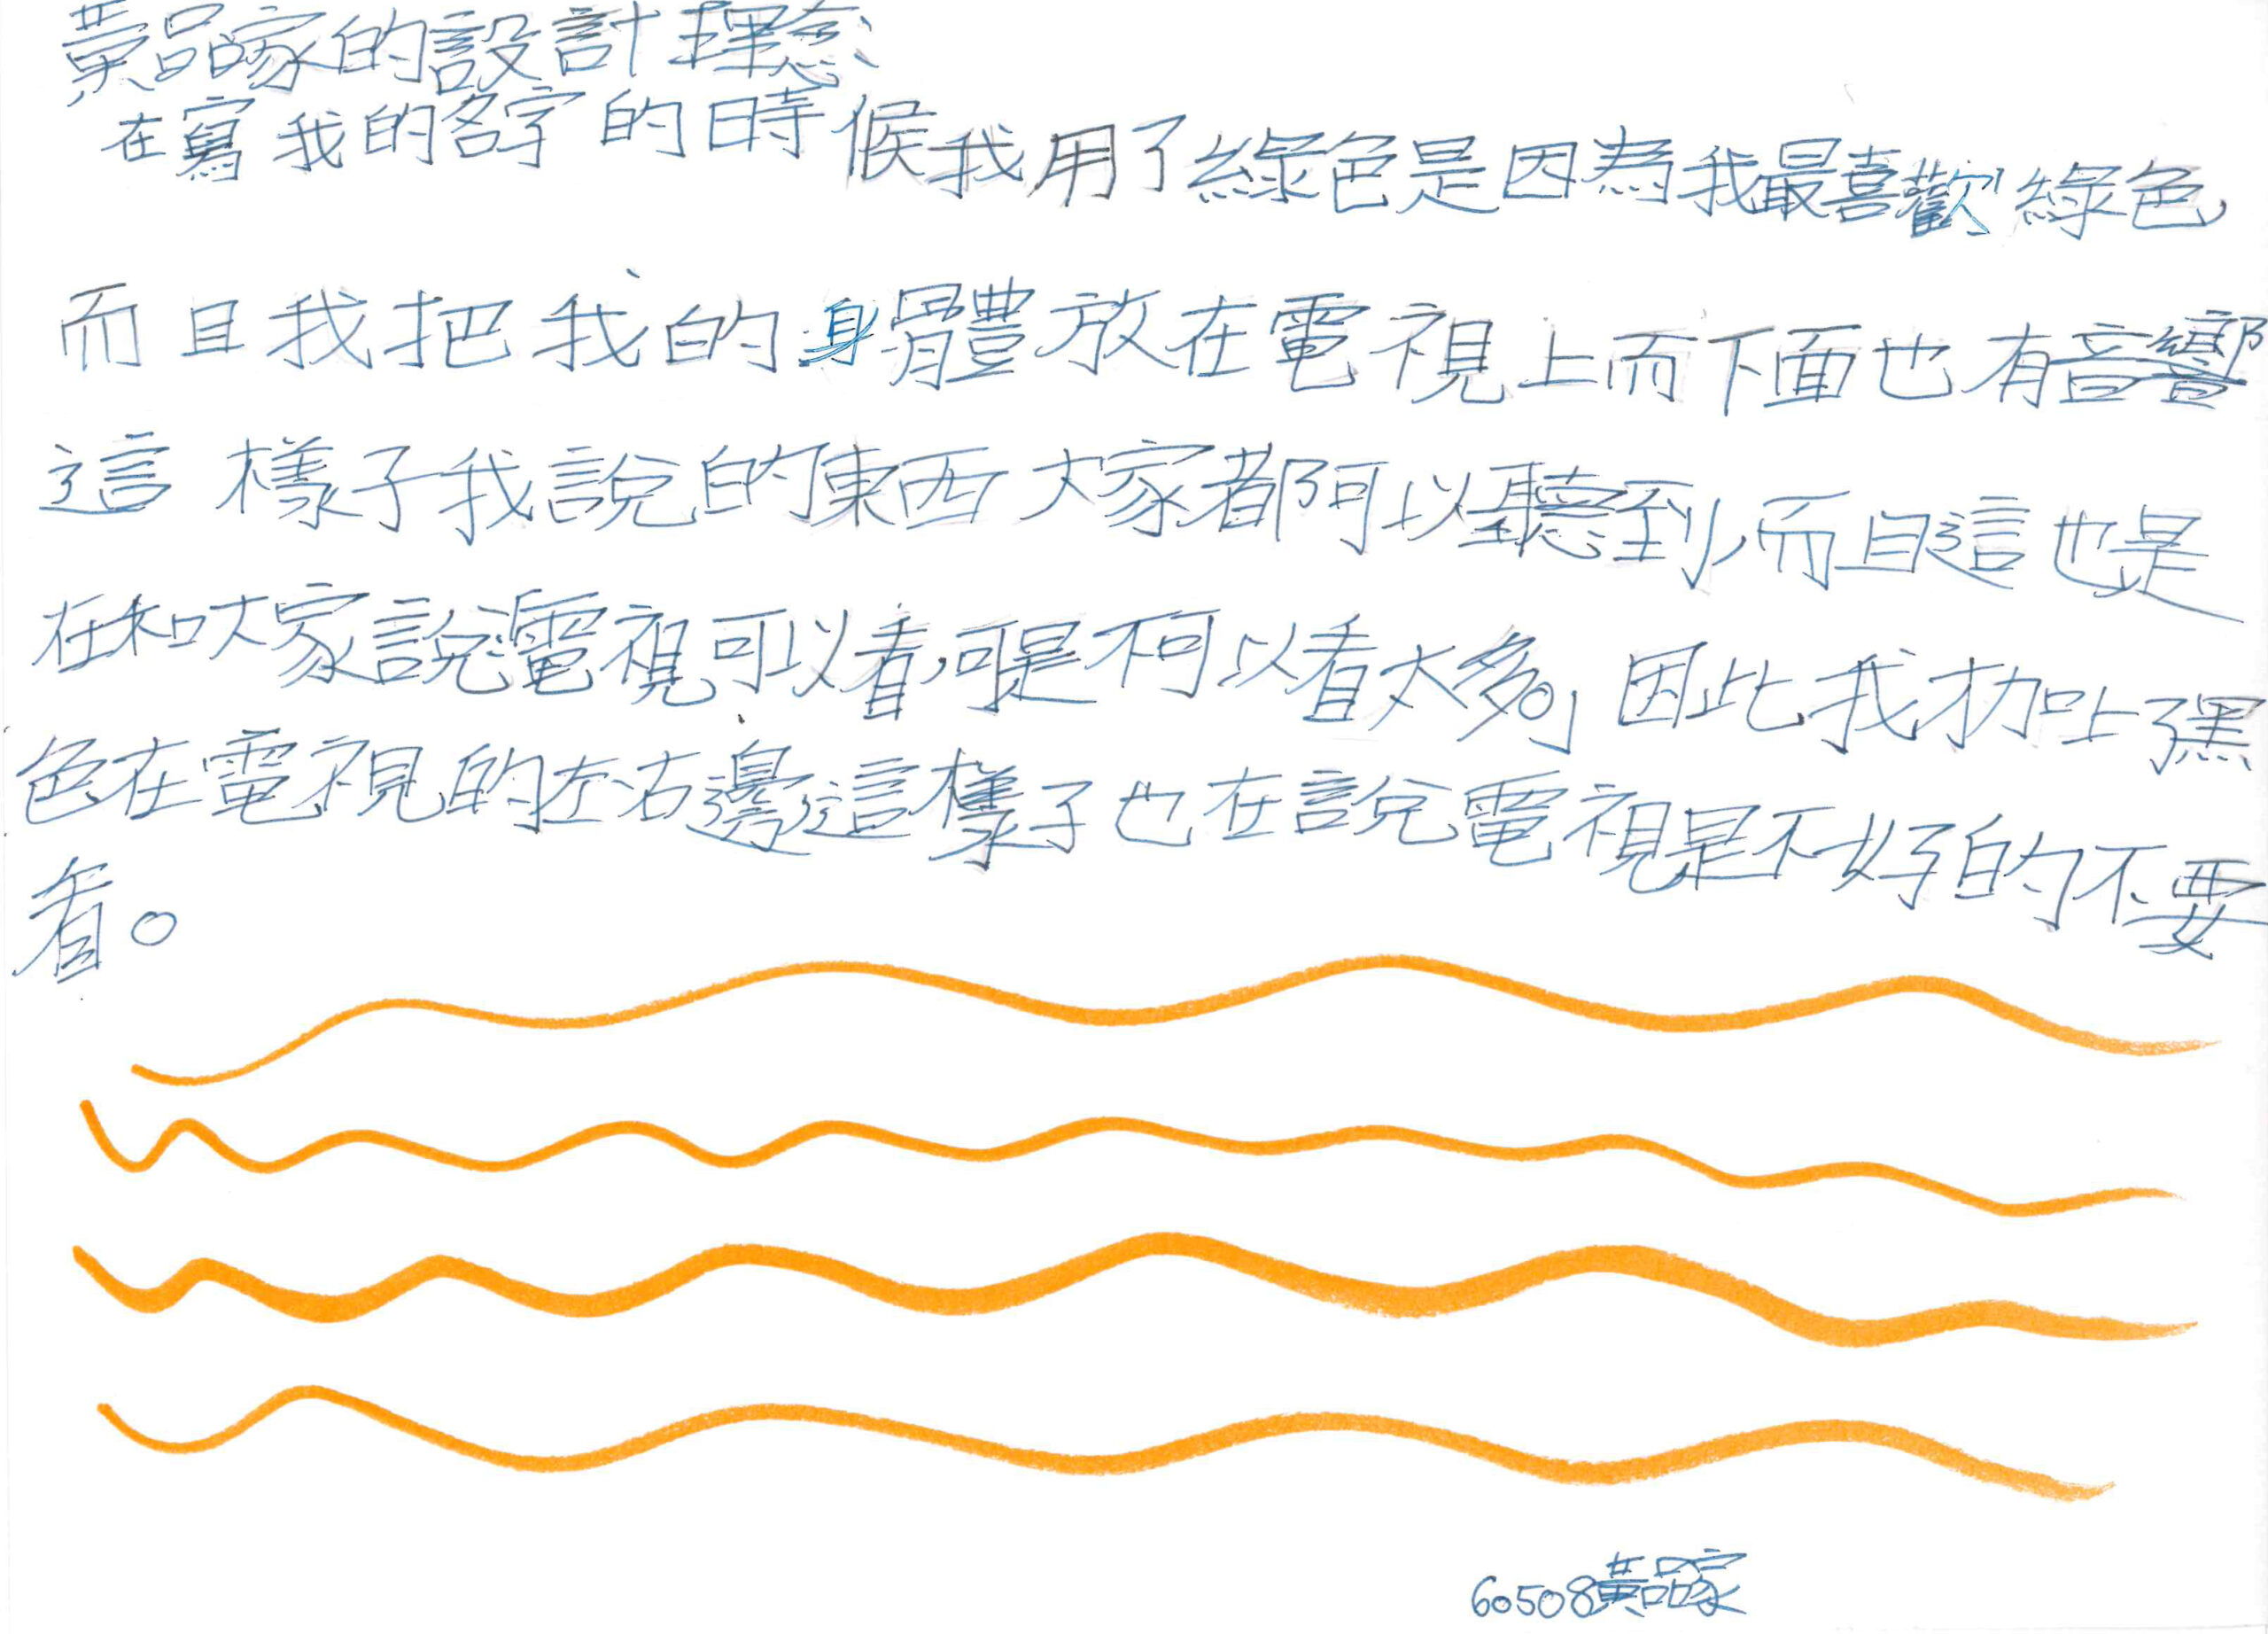 黃品家的設計理念
在寫我的名字的時候我用了綠色是因為我最喜歡綠色,
而且我把我的身體放在電視上而下面也有音響
這樣子我說的東西大家都可以聽到,而且這也是
在和大家說電視可以看,可是不可以看太多,因此我才加上黑
色在電視的左右邊這樣子也在說電視是不好的不要
看。
60508黃品家